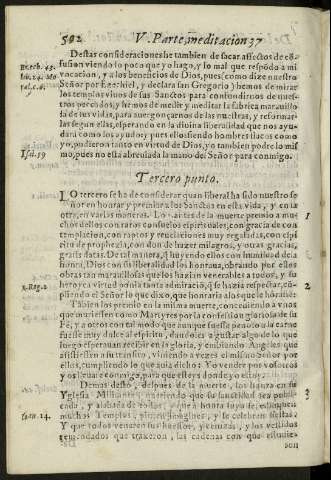 592 V. Parte, meditacion 37
Destas consideraciones he tambien de sacar affectos de cõ
fusion viendo lo poco que yo hago, y lo mal que respõdo a mi
vocacion, y a los beneficios de Dios, pues, como dize nuestro
Señor por Ezechiel, y declara san Gregorio, hemos de mirar
los templos vivos de sus Sanctos para confundirnos de nues-
tros peccados, y hemos de medir y meditar la fabrica maravillo
sa de sus vidas, para avergonçarnos de las nuestras, y reformar
las segun ellas, esperando en la divina liberalidad que nos ayu-
dará como los ayudo; pues ellos siendo hombres flacos como
yo, pudieron tanto en virtud de Dios, yo tambien podre lo mis
mo, pues no esta abreviada la mano del Señor para conmigo.
Isai. 59
Tercero punto.
LO tercero se ha de considerar quan liberal ha sido nuestro se
ñor en honrar y premiar a los Sanctos en esta vida, y en la
otra, en varias maneras. Lo 1. antes de la muerte premio a mu
chos dellos con raros consuelos espirituales, con gracia de con
templacion, con raptos y revelaciones muy regaladas, con espi
ritu de prophecia, con don de hazer milagros, y otras gracias,
gratis datas. De tal manera, q huyendo ellos con humildad de la
honra, Dios con su liberalidad los honraua, obrando por ellos
obras tan maravillosas que los hazian venerables a todos, y su
heroyca virtud ponia tanta admiraciõ, q se hazia respectar, cũ
pliendo el Señor lo que dixo, que honraria a los que le hõrassen.
Tabien los premio en la misma muerte, concediendo a unos
que muriessen como Martyres por la confession gloriosa de su
Fè, y a otros con tal modo que aunque fuesse penoso a la carne
fuesse muy dulce al espiritu, dandoles a gustar algo de lo que
luego esperauan recibir en la gloria, y embiando Angeles que
assistiessen a su transito, viniendo a vezes el mismo Señor por
ellos, cumpliendo lo que avia dicho: Yo vendre por vosotros
y os llevare conmigo, para que esteis donde yo estoy.
Demas desto, despues de la muerte, los honra en su
Yglesia Militante, queriendo que su sanctidad sea publi-
cada, y alabada de todos, y que a honra suya se edifiquen
muchos Templos, pinten Imagines, y se celebren fiestas.
Y que todos veneren sus huessos, y cenizas, y los vestidos
remendados que traxeron, las cadenas con que estuvie-
ron
1
2
3